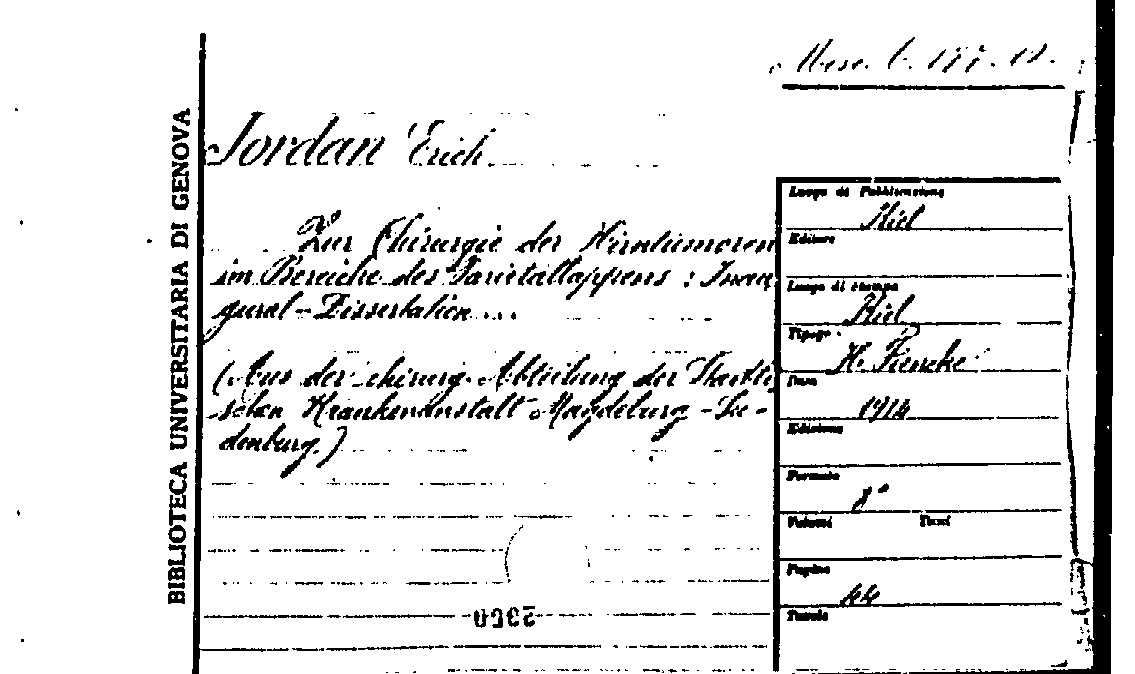 Misc. C. 177. 12.
BIBLIOTECA UNIVERSITARIA DI GENOVA
Jordan Erich
Zur Chirurgie der Hirntumoren
im Bereiche des Parietallappens : Inau
gural-Dissertation ...
(Aus der chirurg. Abteilung der Staedti
schen Krankenanstalt Magdeburg-Su-
denburg.)
Luogo di Pubblicazione
Kiel
Editore
Luogo di stampa
Kiel
Tipogr.
H. Fiencke
Data
1914
Edizione
Formato
8°
Volumi Tomi
Pagine
44
Tavole